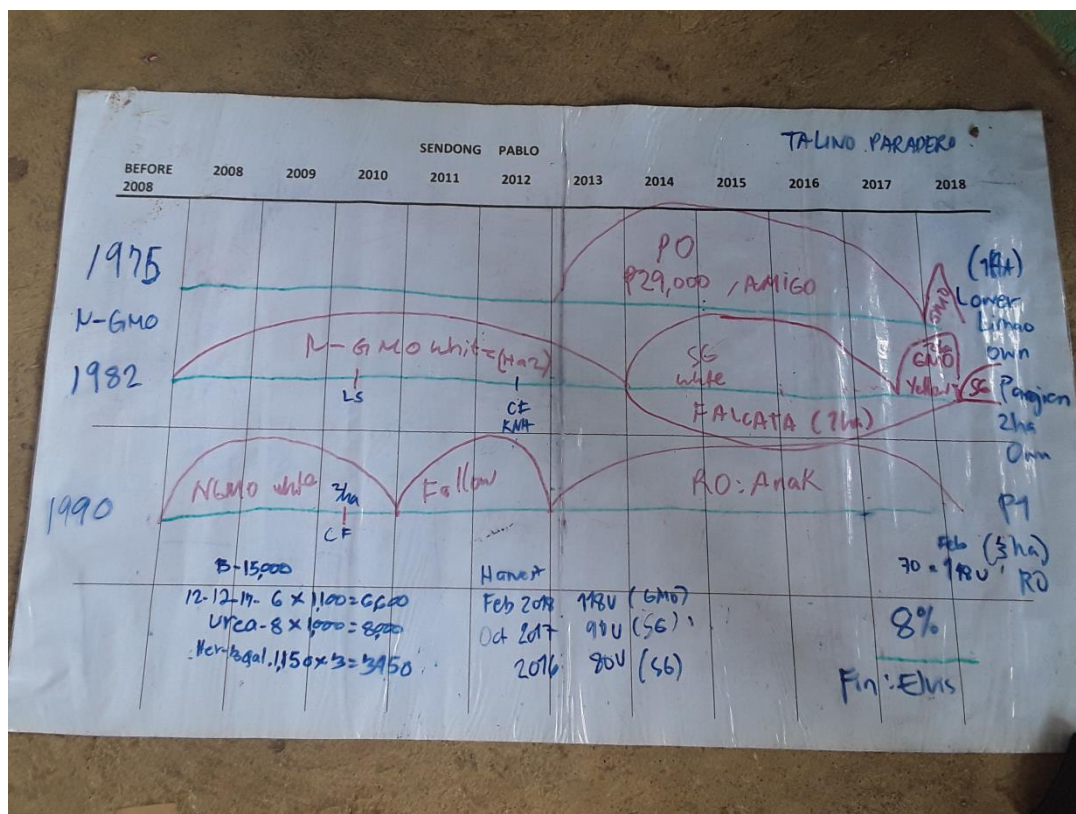 TALINO PARADERO
SENDONG PABLO
BEFORE 2008 2008 2009 2010 2011 2012 2013 2014 2015 2016 2017 2018
1975
PO
₱29,000 , AMIGO
GMO
(1HA)
Lower
Limao
own
N-GMO
1982
N-GMO white (Ha2)
LS
CF
KNA
SG
white
GMO
Yellow
SG
FALCATA (2ha)
Pangian
2ha
Own
1990
NGMO white
2ha
CF
Fallow
RO: Anak
P1
(ha)
RO
Feb
70 = 118U
B-15,000
12-12-17- 6 x 1,100=6,600
Urea-8 x 1,000=8,000
1,150 x 3= 3450
Harvest
Feb 2018 118U (GMO)
Oct 2017 90U (SG)
2016 80U (SG)
8%
Fin: Elvis